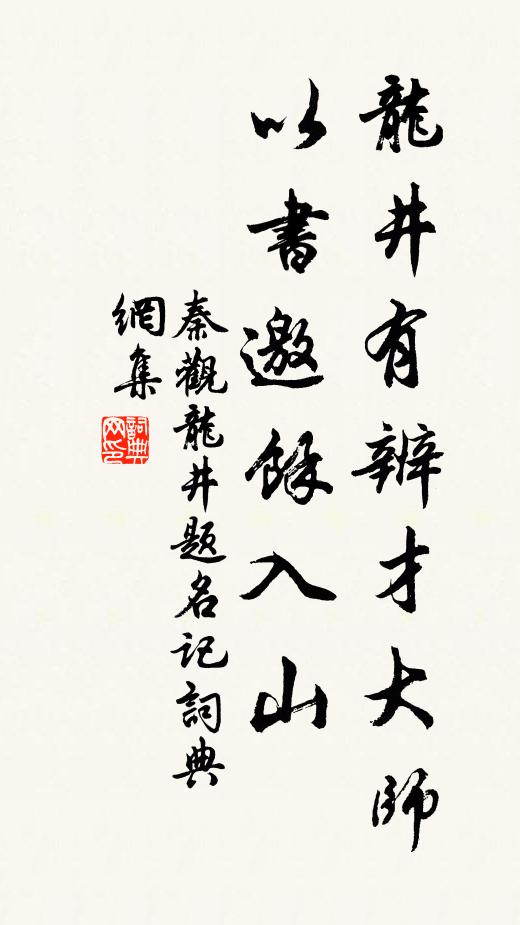 龍井有辨才大師
以書邀餘入山
秦觀龍井題名記詞典
網集
詞典
网印